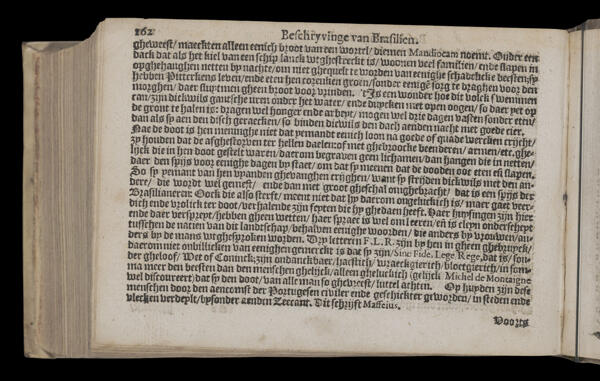 162 Beschryvinge van Brasilien.
gheweest/ maeckten alleen eenich broot van een wortel/ diemen Mandiocam noemt. Onder een
dack dat als het kiel van een schip lanck wtghestreckt is/ woonen veel familien/ ende slapen in
opghehanghen netten by nachte/ om niet ghequelt te worden van eenighe schadelicke beesten/ sy
hebben Pitterkens leven/ ende eten hen torenken groen/ sonder eenige sorg te draghen voor den
morghen/ daer sluytmen gheen broot voor vrinden. t'Is een wonder hoe dit volck swemmen
can/ zijn dickwils gantsche uren onder het water/ ende duycken met open oogen/ so daer yet op
de gront te halen is: dragen wel honger ende arbeyt/ mogen wel drie dagen vasten sonder eten/
dan als sy aen den disch geraecken/ so binden dickwils den dach aenden nacht met goede cier.
Nae de doot is hen meninghe niet dat yemandt eenich loon na goede of quade wercken crijcht/
zy houden dat de afghestorven ter hellen daelen of met ghebroocke beenderen/ armen/ etc. ghe-
lijck die in hen doot gestelt waren/ daerom begraven geen lichamen/ dan hangen die in netten/
daer den spijs voor eenighe dagen by staet/ om dat sy meenen dat de dooden ooc eten en slapen.
So sy yemant van hen vyanden ghevanghen crijghen/ want sy strijden dickwils met den an-
dere/ die wordt wel gemest/ ende dan met groot gheschal omghebracht/ dat is een spijs der
Brasilianeren: Oock die also sterft/ meent niet dat hy daerom ongeluckich is/ maer gaet veer-
dich ende vrolick ter doot/ verhalende zijn feyten die hy ghedaen heeft. Haer huysingen zijn hier
ende daer verspreyt/ hebben gheen wetten/ haer spraec is wel om leeren/ en is cleyn onderscheyt
tusschen de natien van dit landtschap/ behalven eenighe woorden/ die anders by vrouwen/ an-
ders by de mans wtghesproken worden. Dry letteren F.L.R. zijn by hen in gheen ghebruyck/
daerom niet onbillicken van eenighen gemerckt is dat sy zijn/ Sine Fide, Lege, Rege, dat is/ son-
der gheloof/ Wet of Coninck; zijn ondanckbaer/ haestich/ wraeckgierich/ bloetgierich/ in som-
ma meer den beesten dan den menschen ghelijck/ alleen gheluckich (gelijck Michel de Montaigne
wel discoureert) dat sy den doot/ van alle man so ghevreest/ luttel achten. Op huyden zijn dese
menschen door den aencomst der Portugesen civiler ende geschickter geworden/ in steden ende
vlecken verdeylt/ bysonder aenden Zeecant. Dit schrijft Maffeius.
Voorts